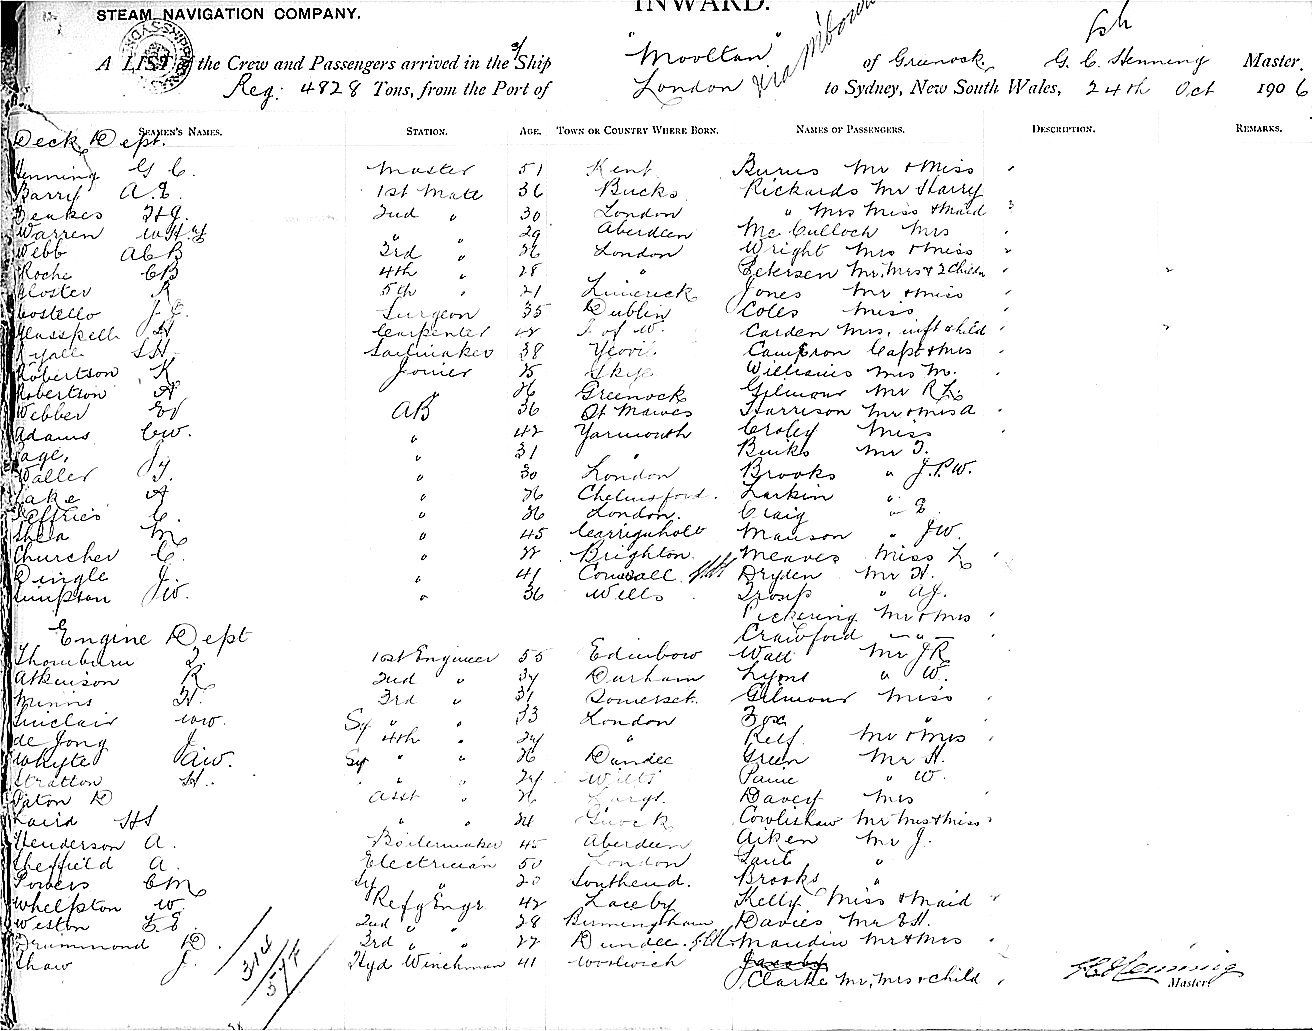 STEAM NAVIGATION COMPANY.
INWARD.
A LIST of the Crew and Passengers arrived in the Ship "Moolton" of Greenock, G. C. Henning Master.
Reg: 4828 Tons, from the Port of London via Mbourne to Sydney, New South Wales, 24th Oct 1906
SEAMEN'S NAMES. STATION. AGE. TOWN OR COUNTRY WHERE BORN. NAMES OF PASSENGERS. DESCRIPTION. REMARKS.
Deck Dept.
Henning G C. Master 51 Kent Burns Mr & Miss
Barry A. E. 1st Mate 36 Bucks Rickards Mr Harry
Beakes 2nd " 30 London " Mrs Miss & Maid
Warren " " 29 Aberdeen McCulloch Mrs
Webb ACB 3rd " 26 London Wright Mrs & Miss
Roche CB 4th " 28 " Petersen Mr, Mrs & 2 Childn
Gloster R 5th " 21 Limerick Jones Mr & Miss
Costello J. C. Surgeon 35 Dublin Coles Miss
Glasspell H Carpenter 42 I. of W. Carden Mrs, inft & child
Ryall SH Sailmaker 38 Yeovil Cameron Capt & Mrs
Robertson K Joiner 25 Skye Williams Mrs M.
Robertson A 26 Greenock Gilmour Mr R L
Webber AB 36 St Mawes Harrison Mr & Mrs A
Adams CW. " 42 Yarmouth Croley Miss
Page, J " 31 " Binks Mr T.
Waller J. " 30 London Brooks " J.P.W.
Lake A " 26 Chelmsford. Larkin "
Jeffries C. " 26 London. Craig " E
Shea M " 45 Carrigaholt Manson " JW.
Churcher C. " 22 Brighton. Meaves Miss L
Dingle J. " 41 Cornwall Dryden Mr H.
Simpson JW. " 36 Wells Trosup " AJ.
Pickering Mr & Mrs
Engine Dept Crawford " "
Thornburn T 1st Engineer 55 Edinbow Watt Mr JR
Atkinson R 2nd " 34 Durham Lyons " W.
Minnis H. 3rd " 31 Somerset. Gilmour Miss
Sinclair WW. Sy " " 33 London Fox "
de Jong J 4th " 24 " Relf Mr & Mrs
Whyte AW. Sy " " 26 Dundee Green Mr H.
Stratton H. " " 24 Wilts Paine " W.
Paton D Asst " 26 Largs. Davey Mrs
Laird HS " " 24 Cowlishaw Mr Mrs & Miss
Henderson A. Boilermaker 45 Aberdeen Aiken Mr J.
Sheffield A. Electrician 50 London "
Powers CM Sy " 20 Southend. Brooks "
Whelpton W. Refg Engr 42 Laceby Kelly Miss & Maid
Weston F.E. 2nd " 28 Birmingham Davies Mr EH.
Drummond D. 3rd " 22 Dundee. Maudin Mr & Mrs
Shaw J. Hyd Winchman 41 Woolwich Jacoby
Clarke Mr, Mrs & child
G C Henning
Master.